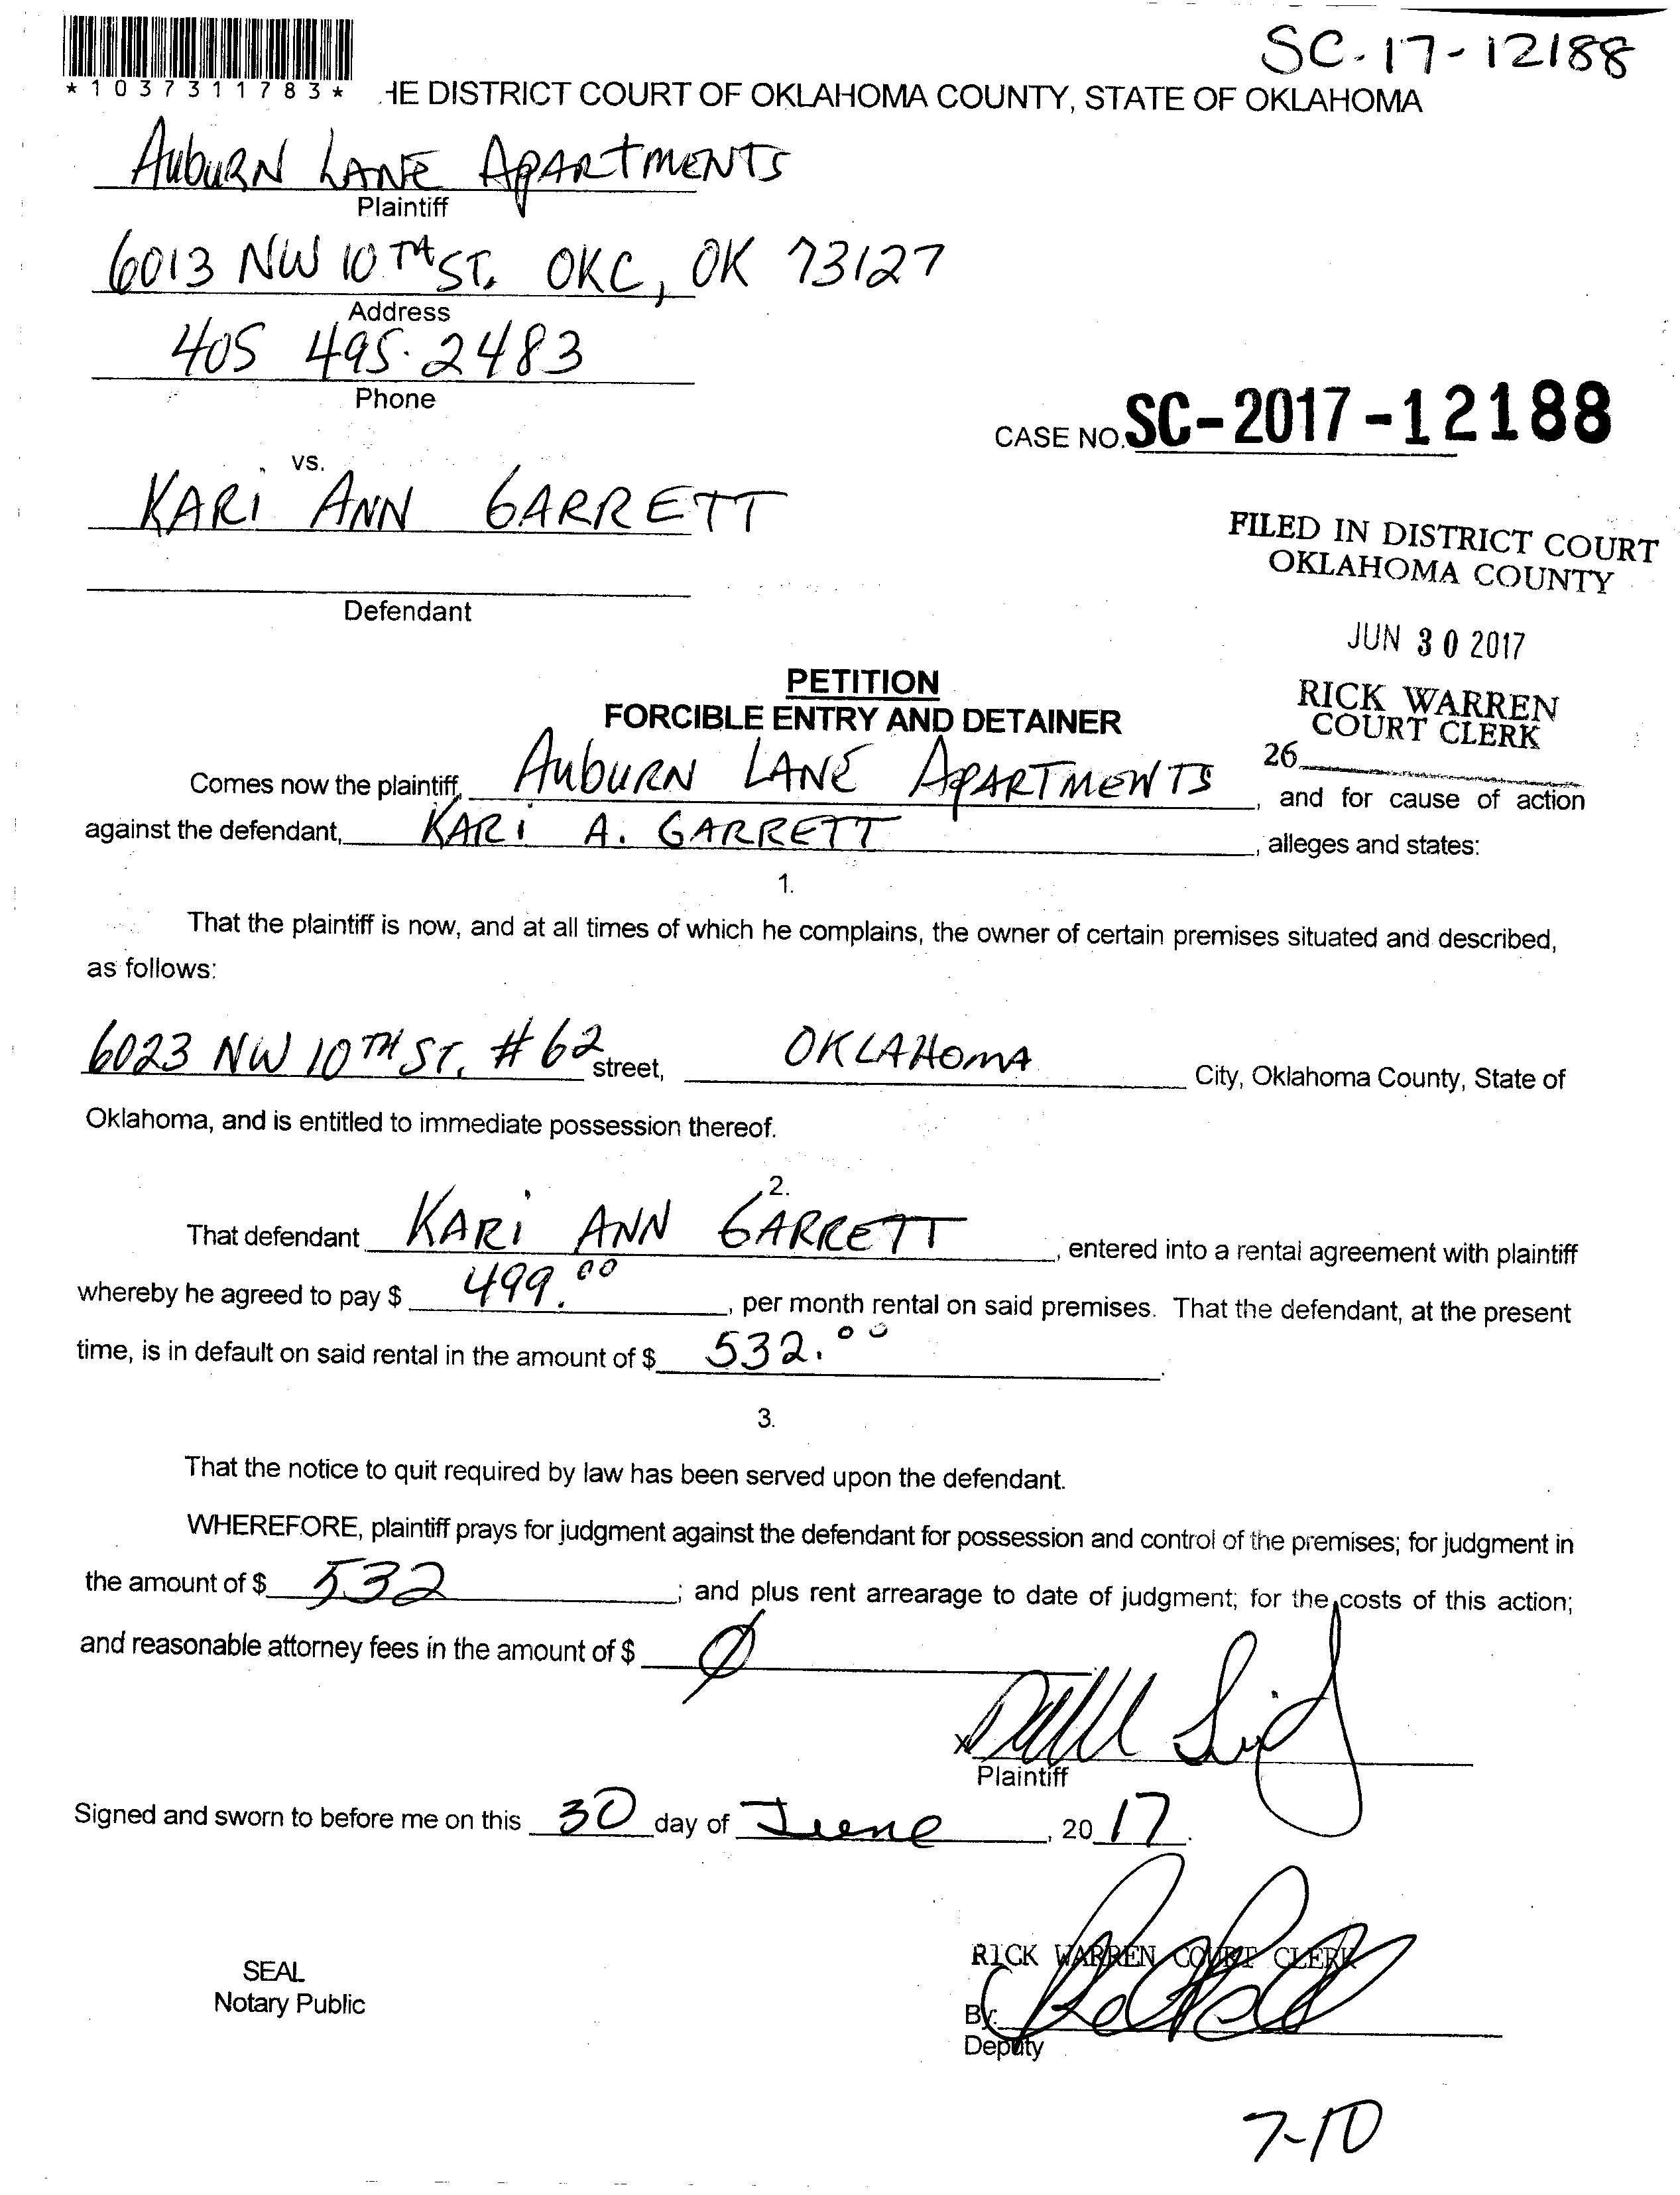 SC-17-12188
*1037311783*
HE DISTRICT COURT OF OKLAHOMA COUNTY, STATE OF OKLAHOMA
AubuRN LANE APARtMENTS
Plaintiff
6013 NW 10TH ST. OKC, OK 73127
Address
405 495.2483
Phone
CASE NO. SC-2017-12188
vs.
KARi ANN GARRETT
FILED IN DISTRICT COURT
OKLAHOMA COUNTY
Defendant
JUN 30 2017
PETITION
RICK WARREN
FORCIBLE ENTRY AND DETAINER
COURT CLERK
26
Comes now the plaintiff, AubuRN LANE APARTMENTS, and for cause of action
against the defendant, KARi A. GARRETT, alleges and states:
1.
That the plaintiff is now, and at all times of which he complains, the owner of certain premises situated and described,
as follows:
6023 NW 10TH ST. #62 street, OKLAHOMA City, Oklahoma County, State of
Oklahoma, and is entitled to immediate possession thereof.
2.
That defendant KARi ANN GARRETT, entered into a rental agreement with plaintiff
whereby he agreed to pay $ 499.00, per month rental on said premises. That the defendant, at the present
time, is in default on said rental in the amount of $ 532.00.
3.
That the notice to quit required by law has been served upon the defendant.
WHEREFORE, plaintiff prays for judgment against the defendant for possession and control of the premises; for judgment in
the amount of $ 532; and plus rent arrearage to date of judgment; for the costs of this action;
and reasonable attorney fees in the amount of $ Ø
X
Plaintiff
Signed and sworn to before me on this 30 day of June, 2017.
RICK WARREN COURT CLERK
SEAL
Notary Public
By:
Deputy
7-10